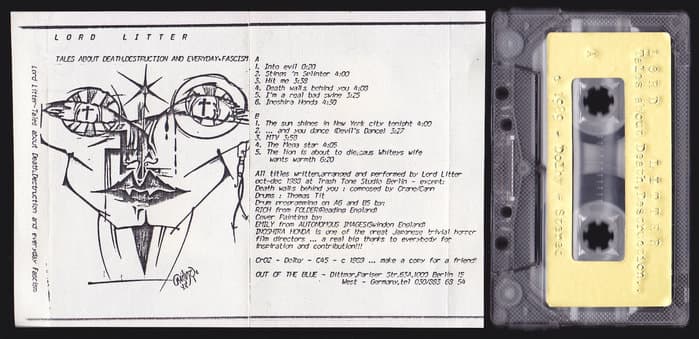 LORD LITTER
TALES ABOUT DEATH,DESTRUCTION AND EVERYDAY-FASCISM
Lord Litter-Tales about Death,Destruction and everyday Fascism
A
1. Into evil 0:20
2. Stings 'n Splinter 4:00
3. Hit me 3:38
4. Death walls behind you 4:08
5. I'm a real bad swine 3:25
6. Inoshira Honda 4:30
B
1. The sun shines in New York city tonight 4:00
2. ... and you dance (Devil's Dance) 3:27
3. MTV 3:58
4. The Mega star 4:05
5. The lion is about to die,caus Whiteys wife
wants warmth 6:20
All titles written,arranged and performed by Lord Litter
oct-dec 1989 at Trash Tone Studio Berlin - except:
Death walls behind you : composed by Crane/Cann
Drums : Thomas Tit
Drum programming on A6 and B5 by:
RICH from FOLDER(Reading England)
Cover Painting by:
EMILY from AUTONOMOUS IMAGES(Swindon England)
INOSHIRA HONDA is one of the great Japanese trivial horror
film directors ... a real big thanks to everybody for
inspiration and contribution!!!
CrO2 - Dolby - C45 - c 1989 ... make a copy for a friend!
OUT OF THE BLUE - Dittmar,Pariser Str.63A,1000 Berlin 15
West - Germany,tel 030/883 68 54
A